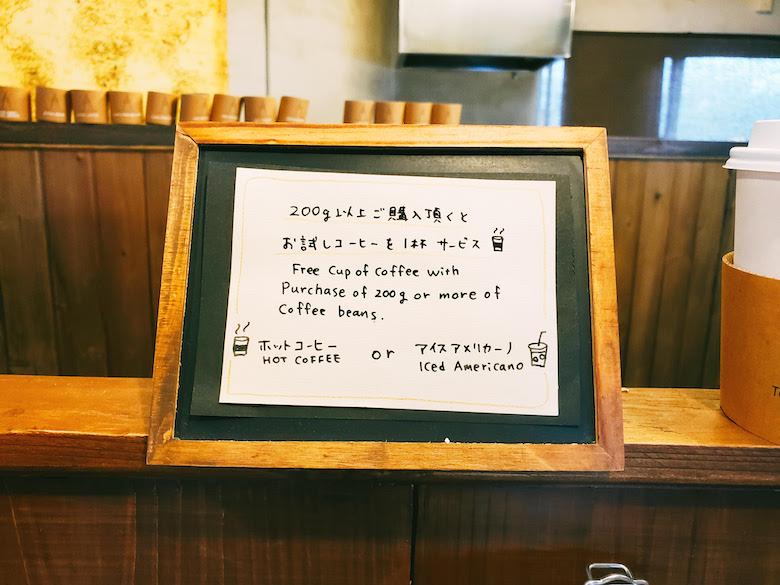 200g以上ご購入頂くと
お試しコーヒーを1杯サービス
Free Cup of Coffee with
Purchase of 200g or more of
Coffee beans.
ホットコーヒー or アイスアメリカーノ
HOT COFFEE Iced Americano